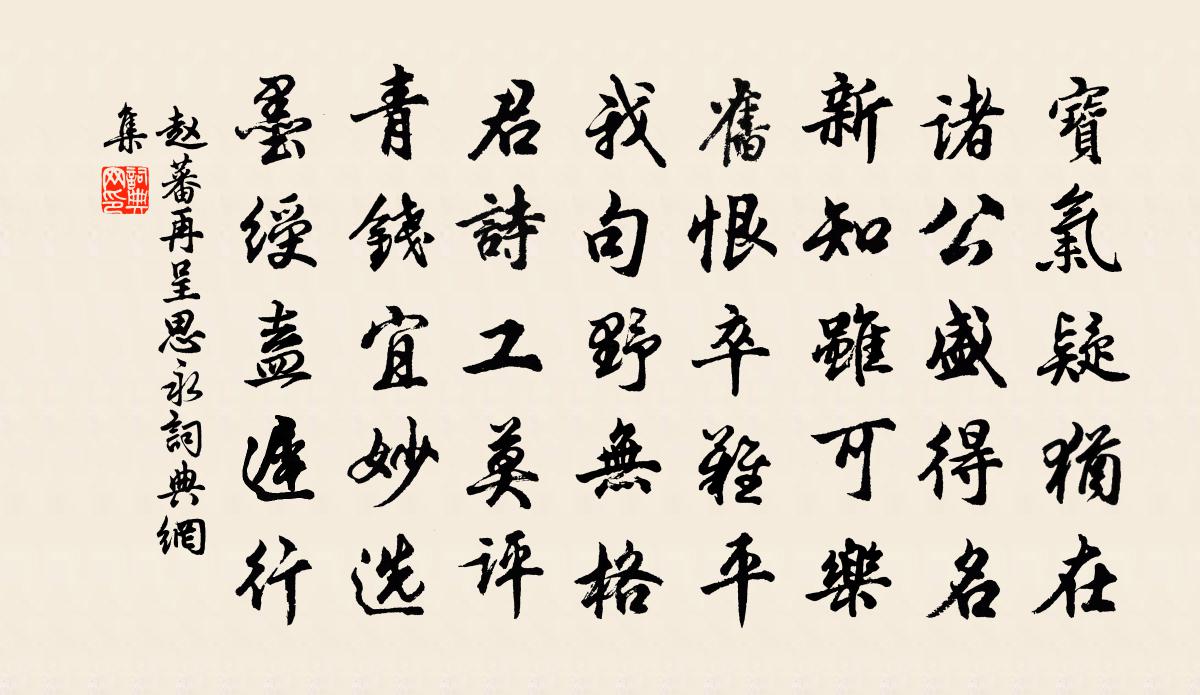 寶氣疑猶在
諸公盛得名
新知雖可樂
舊恨卒難平
我句野無格
君詩工莫評
青錢宜妙选
墨綬盍遲行
赵蕃再呈思永詞典網
集
詞典
网印